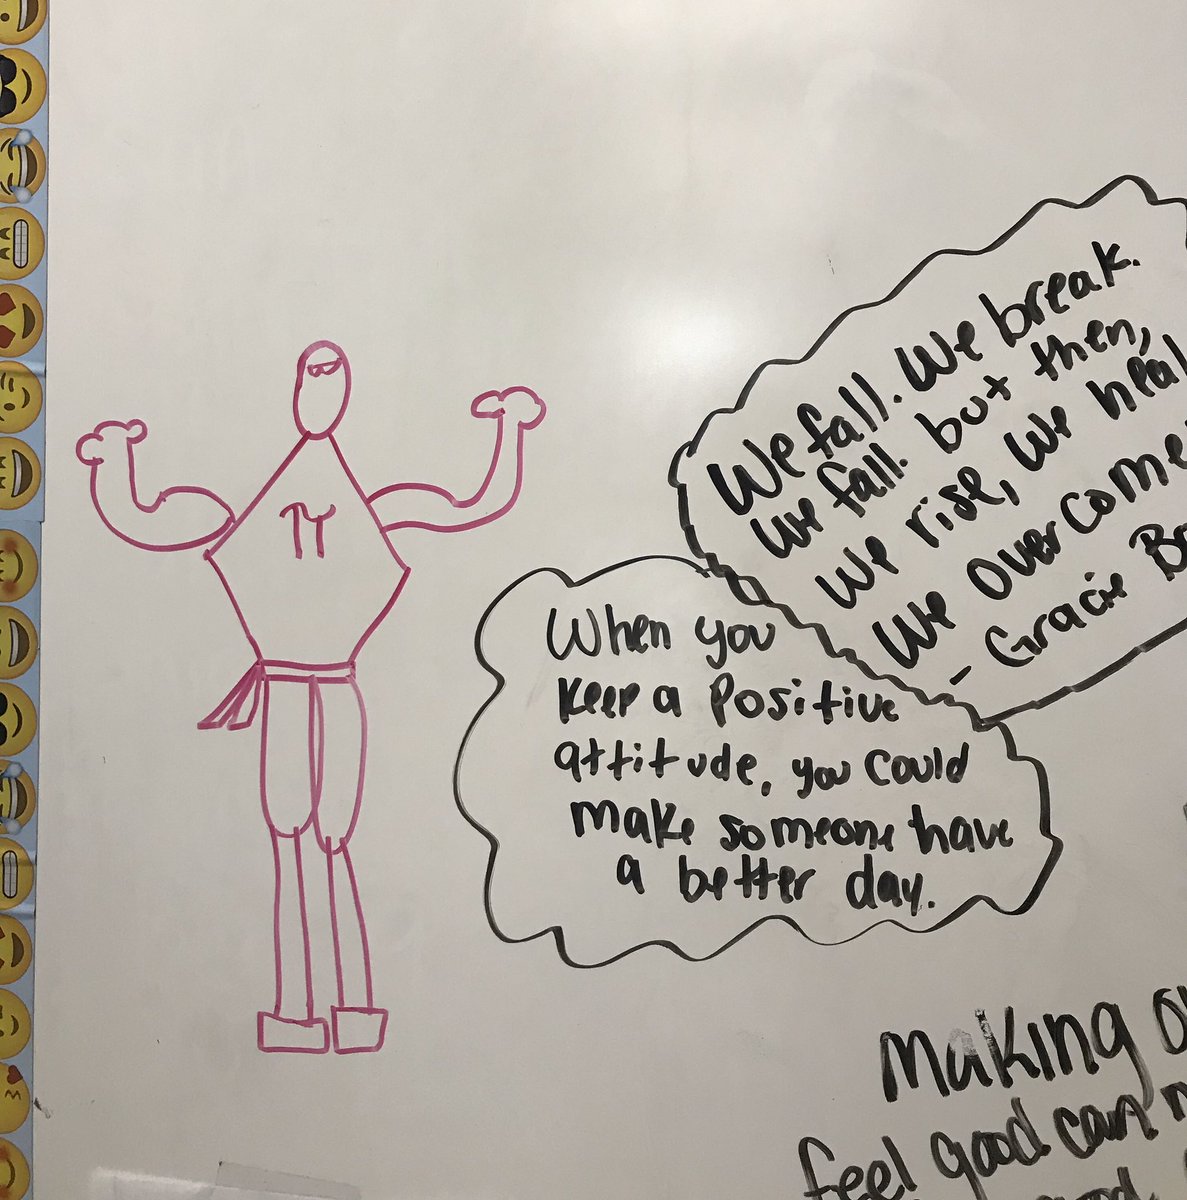 π
We fall. We break.
We fall. but then,
We rise, We heal
We overcome
- Gracie
When you
keep a positive
attitude, you could
make someone have
a better day.
making
feel good can